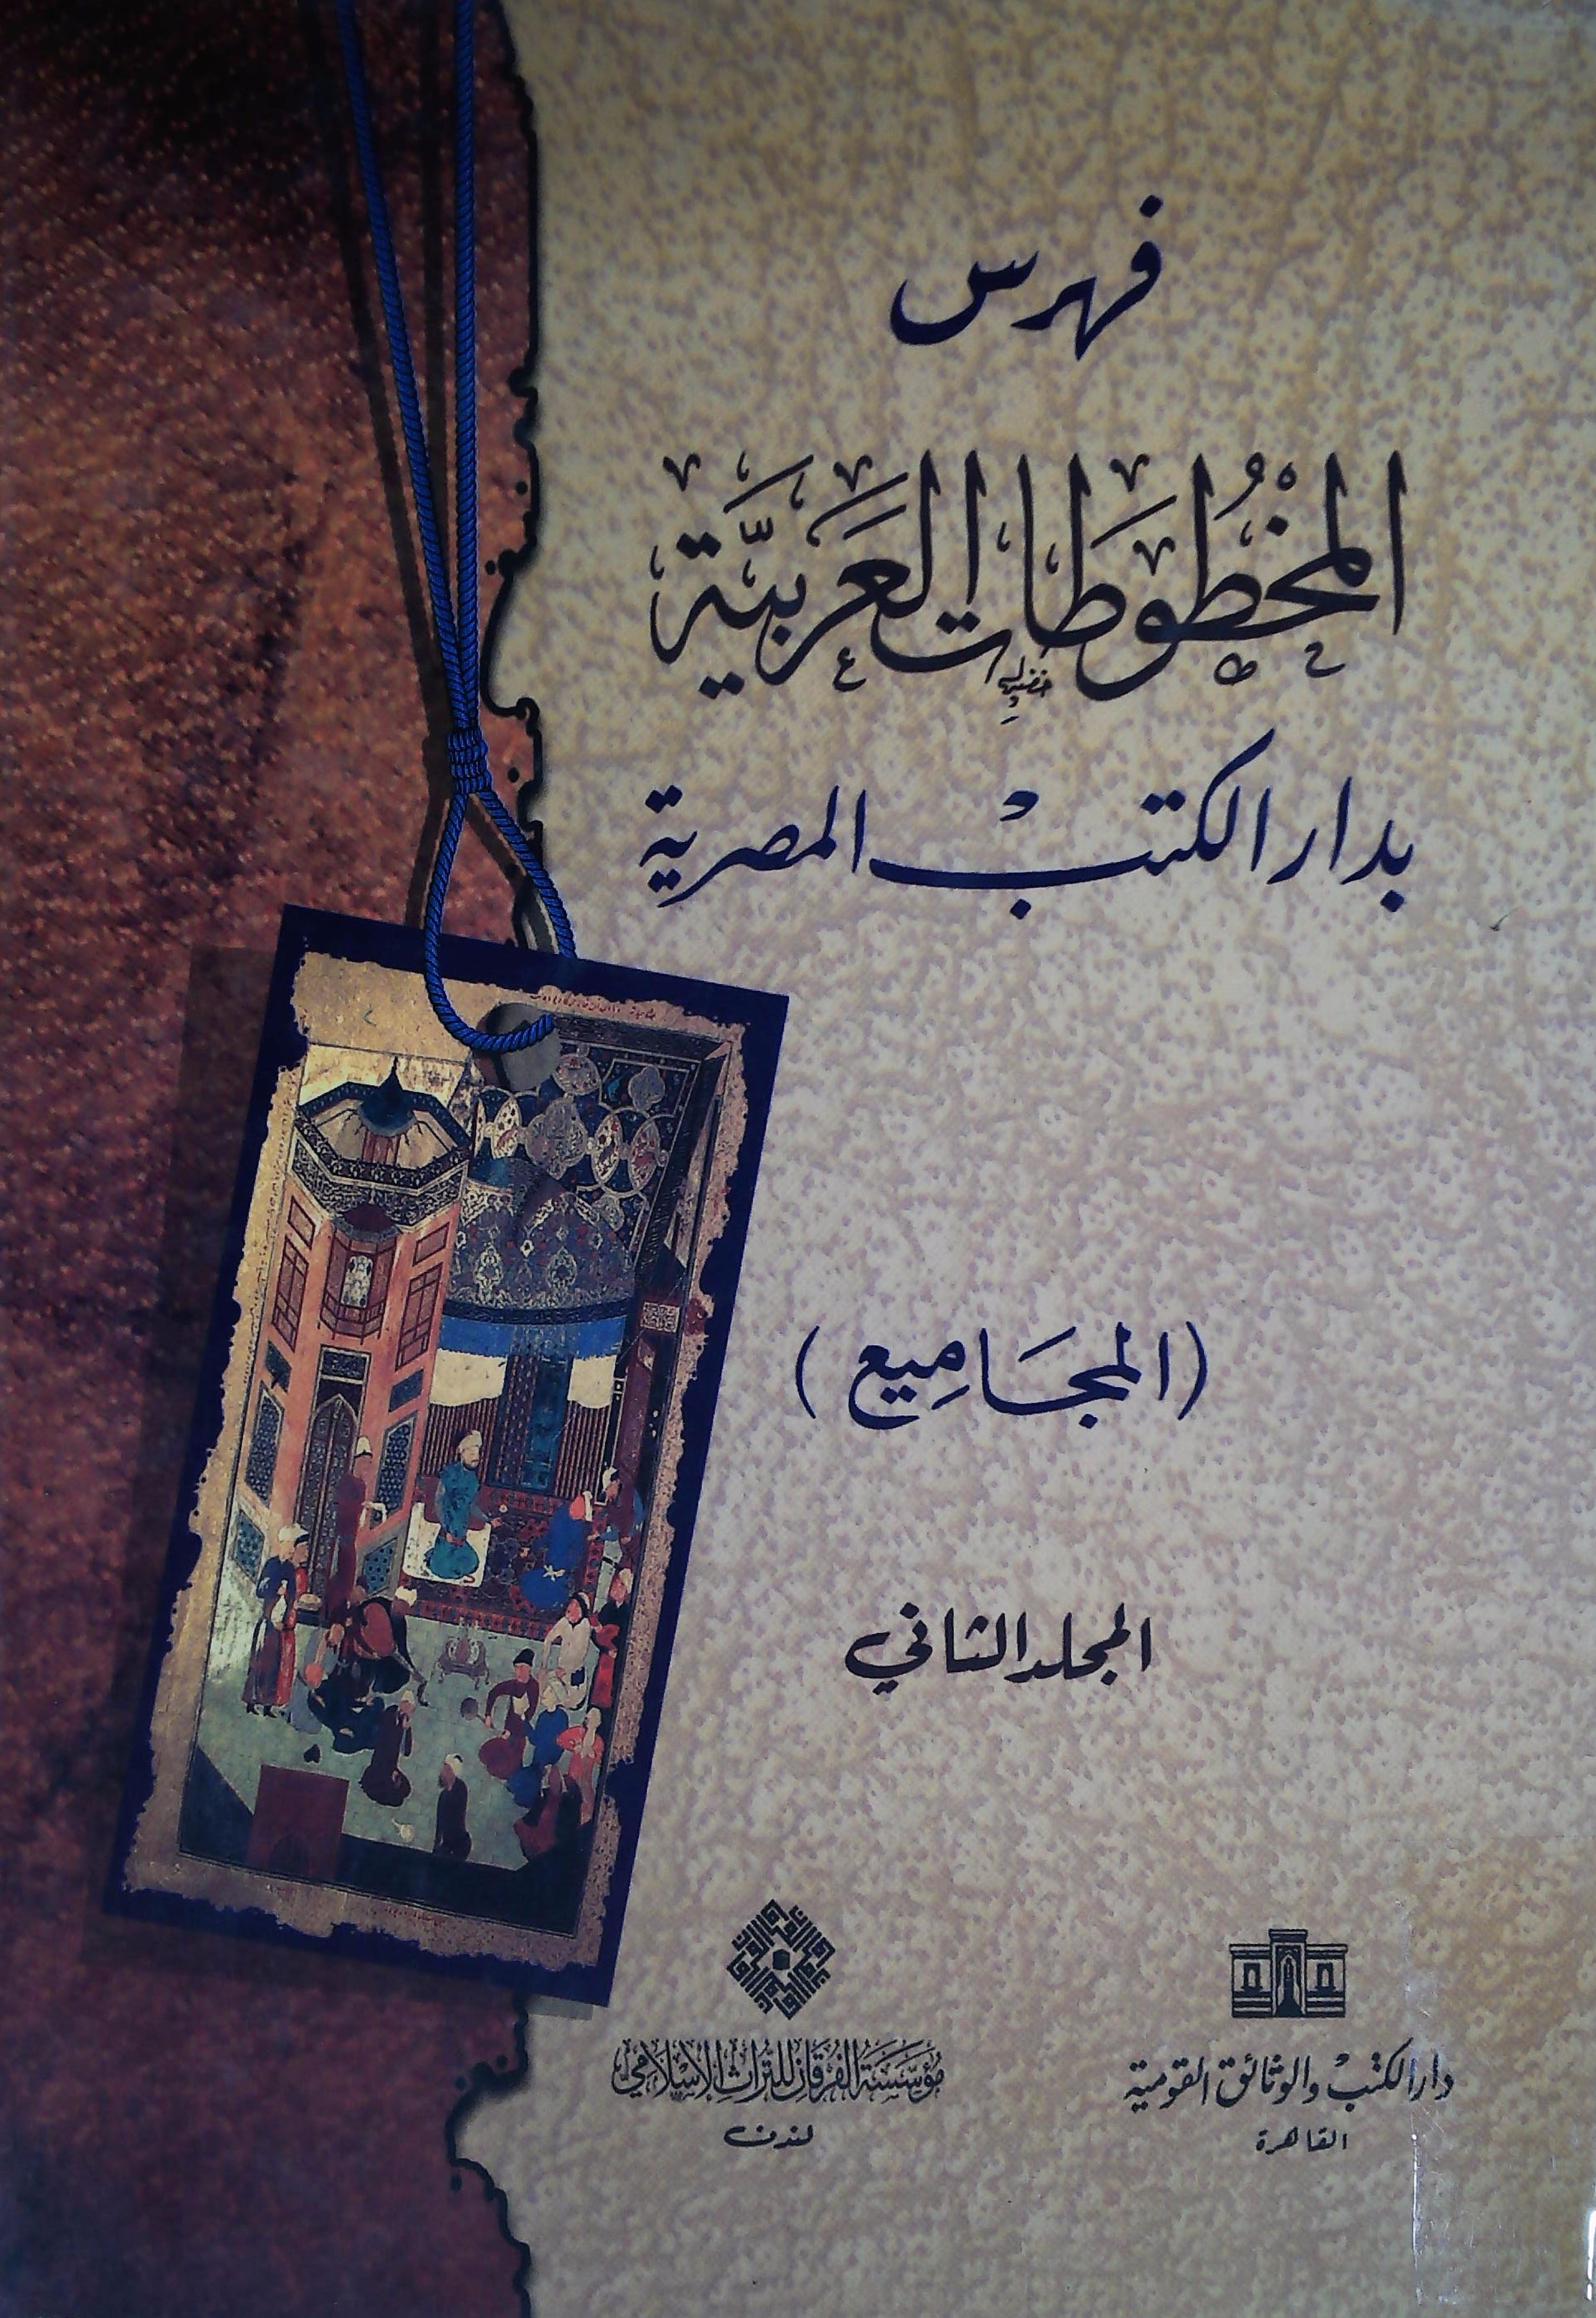 فهرس
المخْطُوطَات العَرَبيَّة
بدار الكتبْ المصرية
(المجَامِيع)
المجلد الثاني
مؤسَّسَة الفُرقَان للتُراث الإسْلَامي
لندن
دار الكتبْ والوثائق القومية
القاهرة